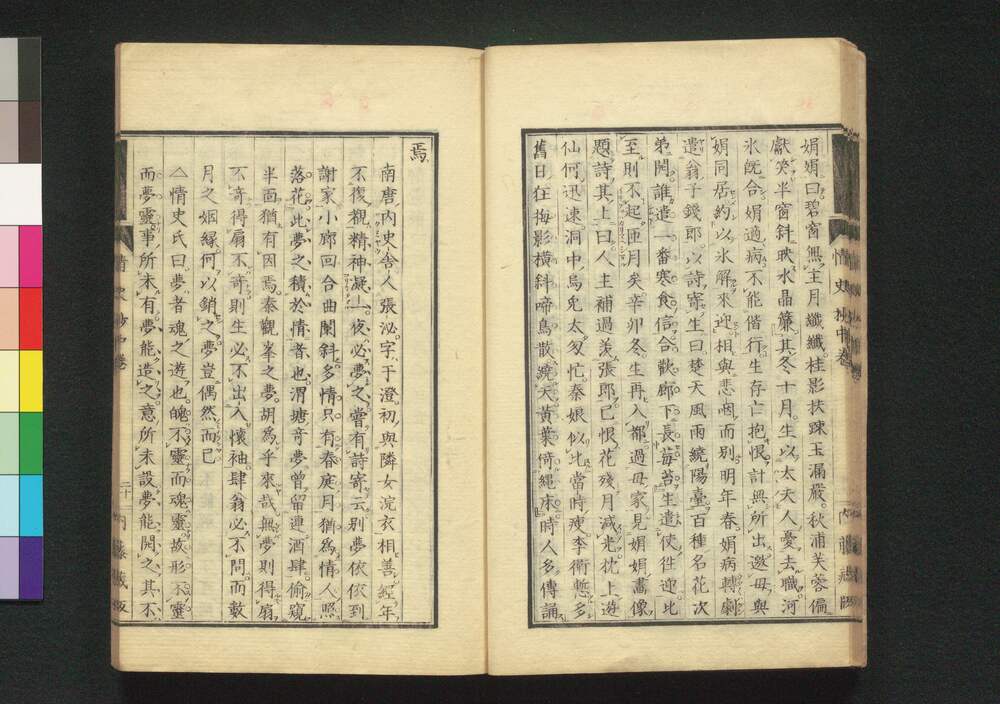 娟娟曰碧窗無主月纖纖桂影扶踈玉漏嚴秋浦芙蓉偏
獻笑半窗斜映水晶簾其冬十月生以太夫人憂去職河
氷既合娟適病不能偕行生存亡抱恨計無所出邀母與
娟同居約以氷解來迎相與悲咽而別明年春娟病轉劇
遣翁子錢郎以詩寄生曰楚天風雨繞陽臺百種名花次
苐開誰遣一番寒食信合歡廊下長莓苔生遣使往迎比
至則不起匝月矣辛卯冬生再入都過母家見娟娟畫像
題詩其上曰人主補過羡張郎已恨花殘月減光枕上遊
仙何迅速洞中烏兎太匆忙秦娘似比當時瘦李衛慙多
舊日狂梅影橫斜啼鳥散繞天黃葉倚繩床時人多傳誦
情史抄中卷
焉
南唐内史舎人張泌字子澄初與隣女浣衣相善經年
不復覩精神凝一夜必夢之嘗有詩寄云別夢依依到
謝家小廊回合曲闌斜多情只有春庭月猶爲情人照
落花此夢之積於情者也渭塘奇夢曾留連酒肆偷窺
半面猶有因焉秦觀峯之夢胡爲乎來哉無夢則得扇
不奇得扇不奇則生必不出入懷袖肆翁必不問而數
月之姻緣何以銷之夢豈偶然而已
△情史氏曰夢者魂之遊也魄不靈而魂靈故形不靈
而夢靈事所未有夢能造之意所未設夢能開之其不
情史抄中卷
二十
内藤藏版